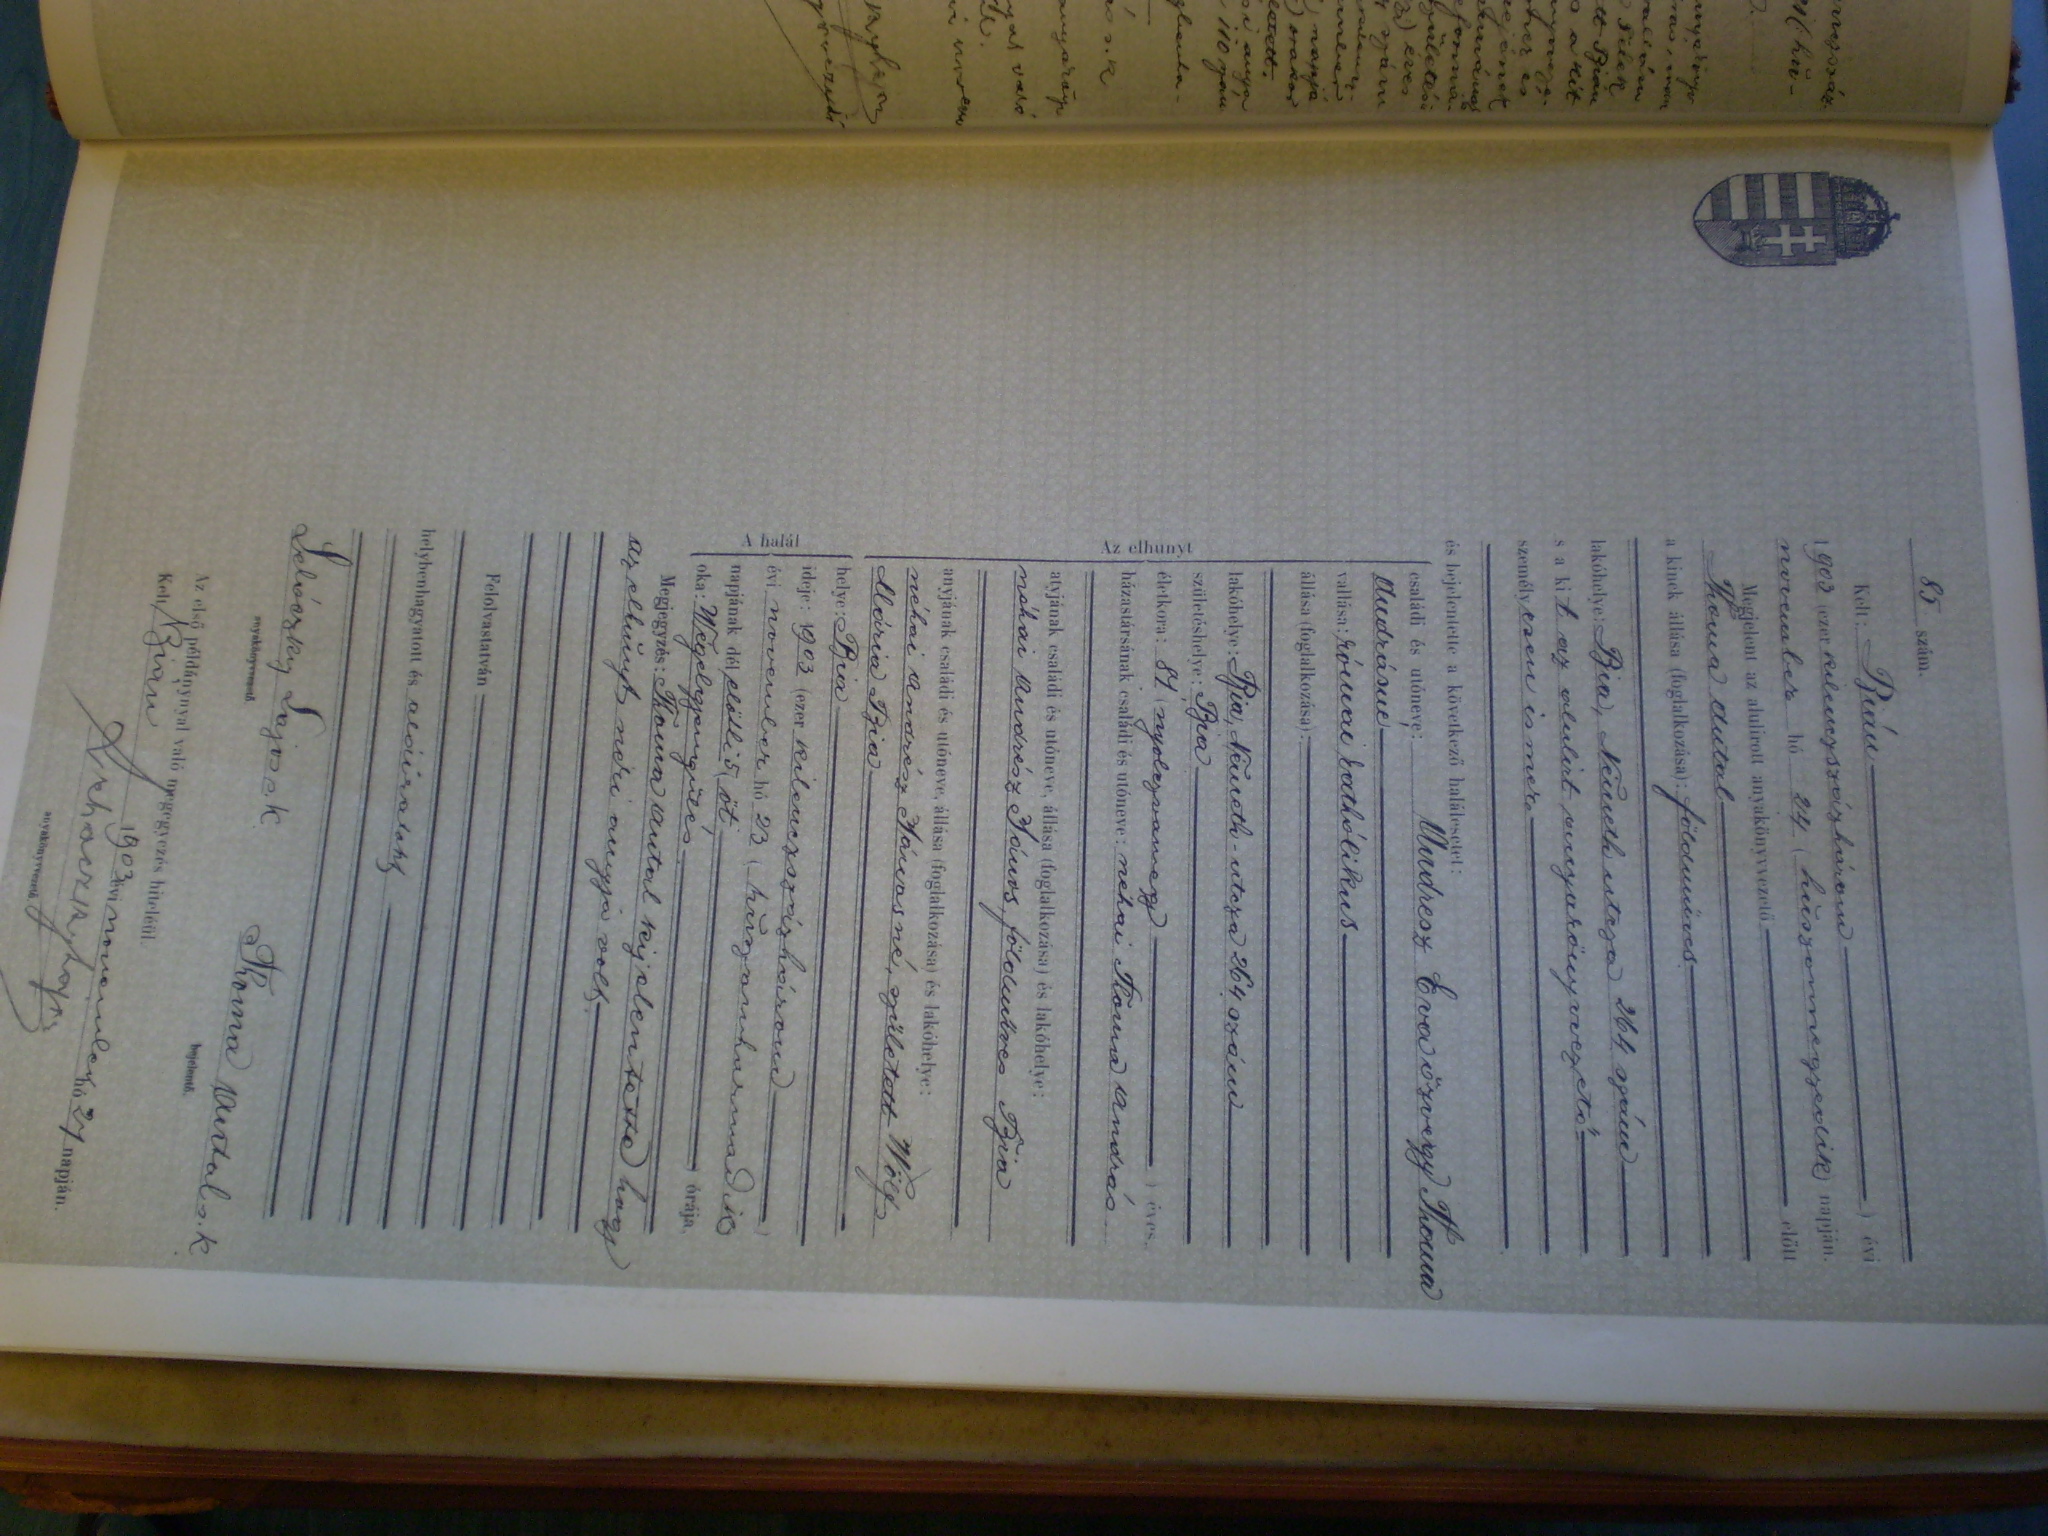 85 szám.
Kelt: Bián
1903 (ezer kilencszázhárom) évi
november hó 24 (huszonnegyedik) napján.
Megjelent az alulirott anyakönyvvezető előtt
Thoma Antal
a kinek állása (foglalkozása): földmüves
lakóhelye: Bia, Németh utcza 264 szám
s a kit az alulirt anyakönyvvezető
személyesen ismer
és bejelentette a következő halálesetet:
Az elhunyt
családi és utóneve: Andresz Éva özvegy Thoma
Andrásné
vallása: római kathólikus
állása (foglalkozása):
lakóhelye: Bia, Németh-utcza 264 szám
születéshelye: Bia
életkora: 81 (nyolczvanegy) éves.
házastársának családi és utóneve: néhai Thoma András
atyjának családi és utóneve, állása (foglalkozása) és lakóhelye:
néhai Andresz János földmüves Bia
anyjának családi és utóneve, állása (foglalkozása) és lakóhelye:
néhai Andresz Jánosné, született Wölf
Mária Bia
A halál
helye: Bia
ideje: 1903 (ezer kilenczszázhárom)
évi november hó 23 (huszonharmadik)
napjának dél előtti 5 (öt) órája.
oka: Végelgyengülés
Megjegyzés: Thoma Antal kijelentette hogy
az elhúnyt néki anyja volt
Felolvastatván
helybenhagyatott és aláiratott
Thoma Antal s. k.
anyakönyvvezető
bejelentő.
Az első példánynyal való megegyezés hiteléül.
Kelt Bián 1903 évi november hó 24 napján.
anyakönyvvezető